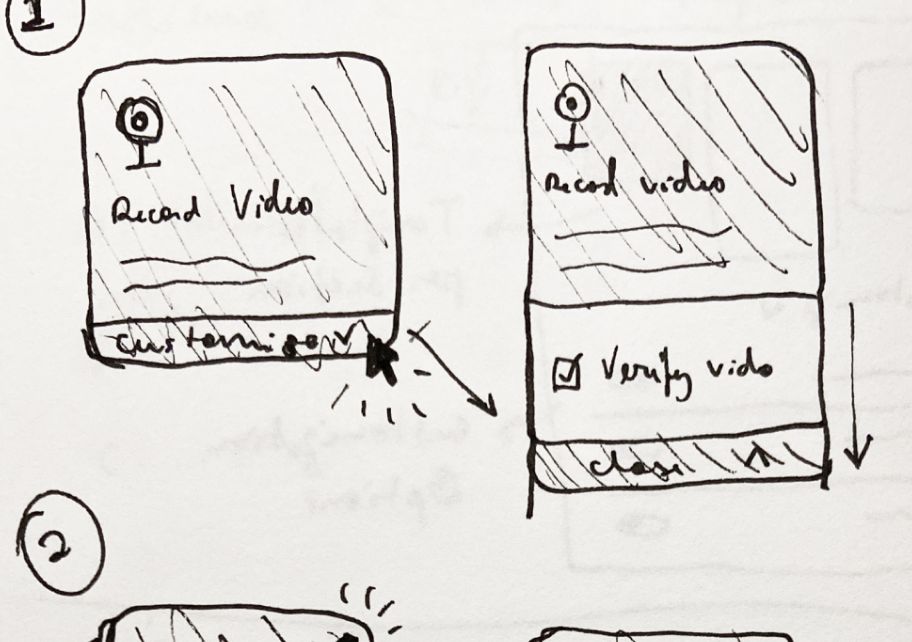 1
Record Video
Record video
customize
Verify video
close
2